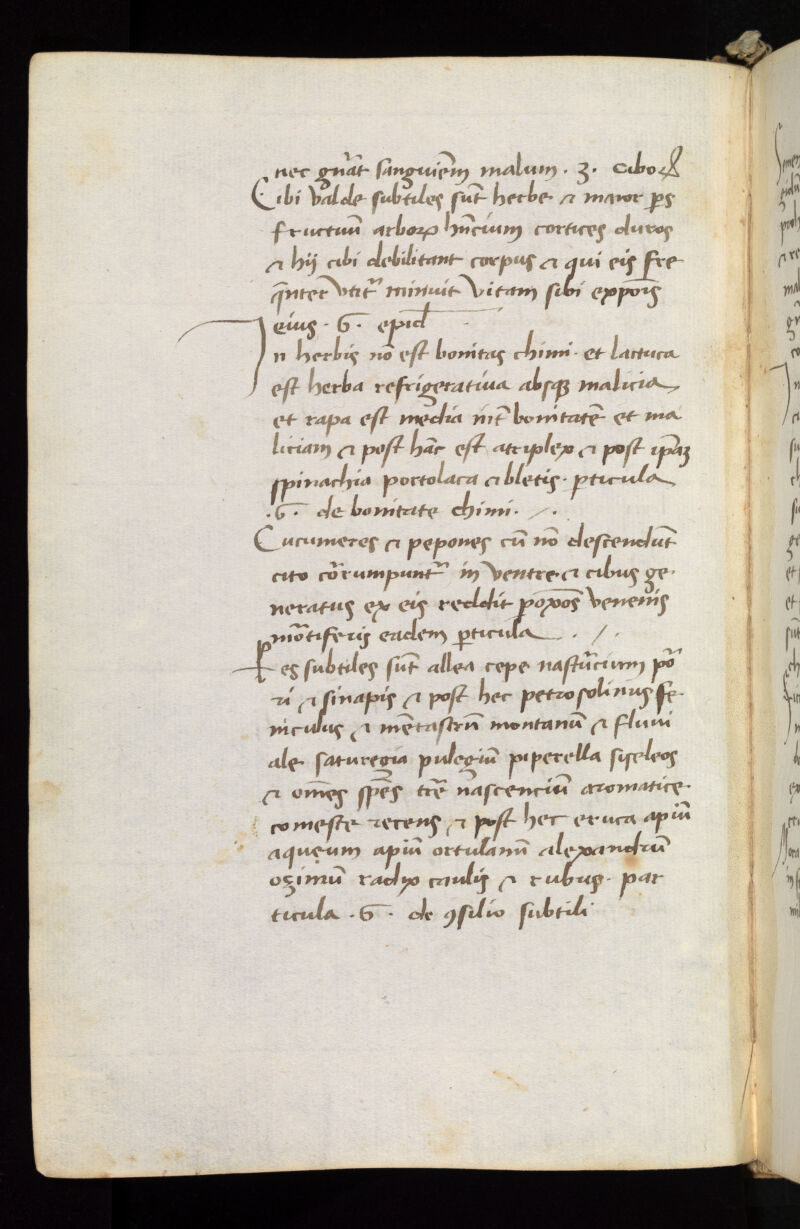 nec gn̄at sanguiēm malum · 3 · ciboꝝ
Cibi valde subtiles sūt herbe & maior ps
fructuū arboꝝ hn̄cium cortices duros
& hij cibi debilitant corpus & qui eis fre
q̄nter utit᷑ minuit vitam sibi exp̄ois
eius · 6 · epid
In herbis nō est bonitas chimi · et lactuca
est herba refrigerativa absqꝫ malicia
et rapa est media int̄ bonitatē et ma
liciam & post hāc est atriplex & post ip̄aꝫ
spinachia portolaca & bletis · ꝑticula
· 6 · de bonitate chimi ·
Cucumeres & pepones cū nō descendūt
cito cōrumpunt᷑ in ventre & cibus ge
neratus ex eis reddit ꝓxiōs venenis
mortiferis eadem ꝑticula
Res subtiles sūt allea cepe nasturcium pō
ri & sinapis & post hec petrosolinus fe
niculus & mētastrū montanū & fluvi
ale saturegia pulegiū piperella siseleos
& om̄es sp̄es tr̄e nascenciū aromatice
comeste recens & post hec eruca apiū
aqueum apiū ortulanū alexandrū
oʒimū radix caulis & rubus · par
ticula · 6 · de ꝯsilio subtili